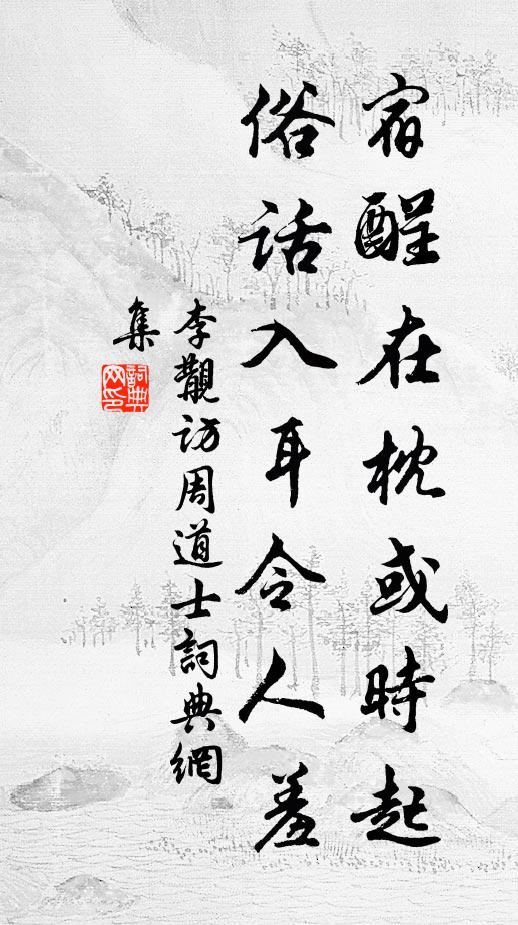 宿酲在枕或時起
俗话入耳令人羞
李觀访周道士詞典網
集
詞典
网印